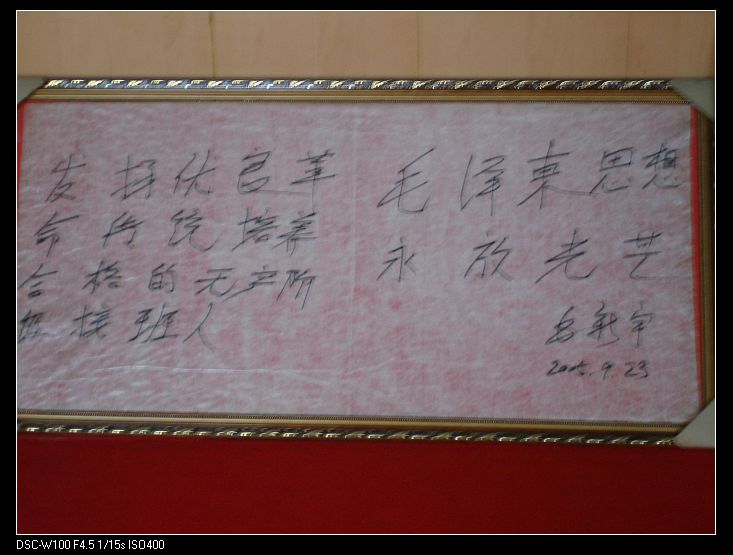 发扬优良革
命传统培养
合格的无产阶
级接班人
毛泽东思想
永放光芒
2005.9.23
DSC-W100 F4.5 1/15s ISO400